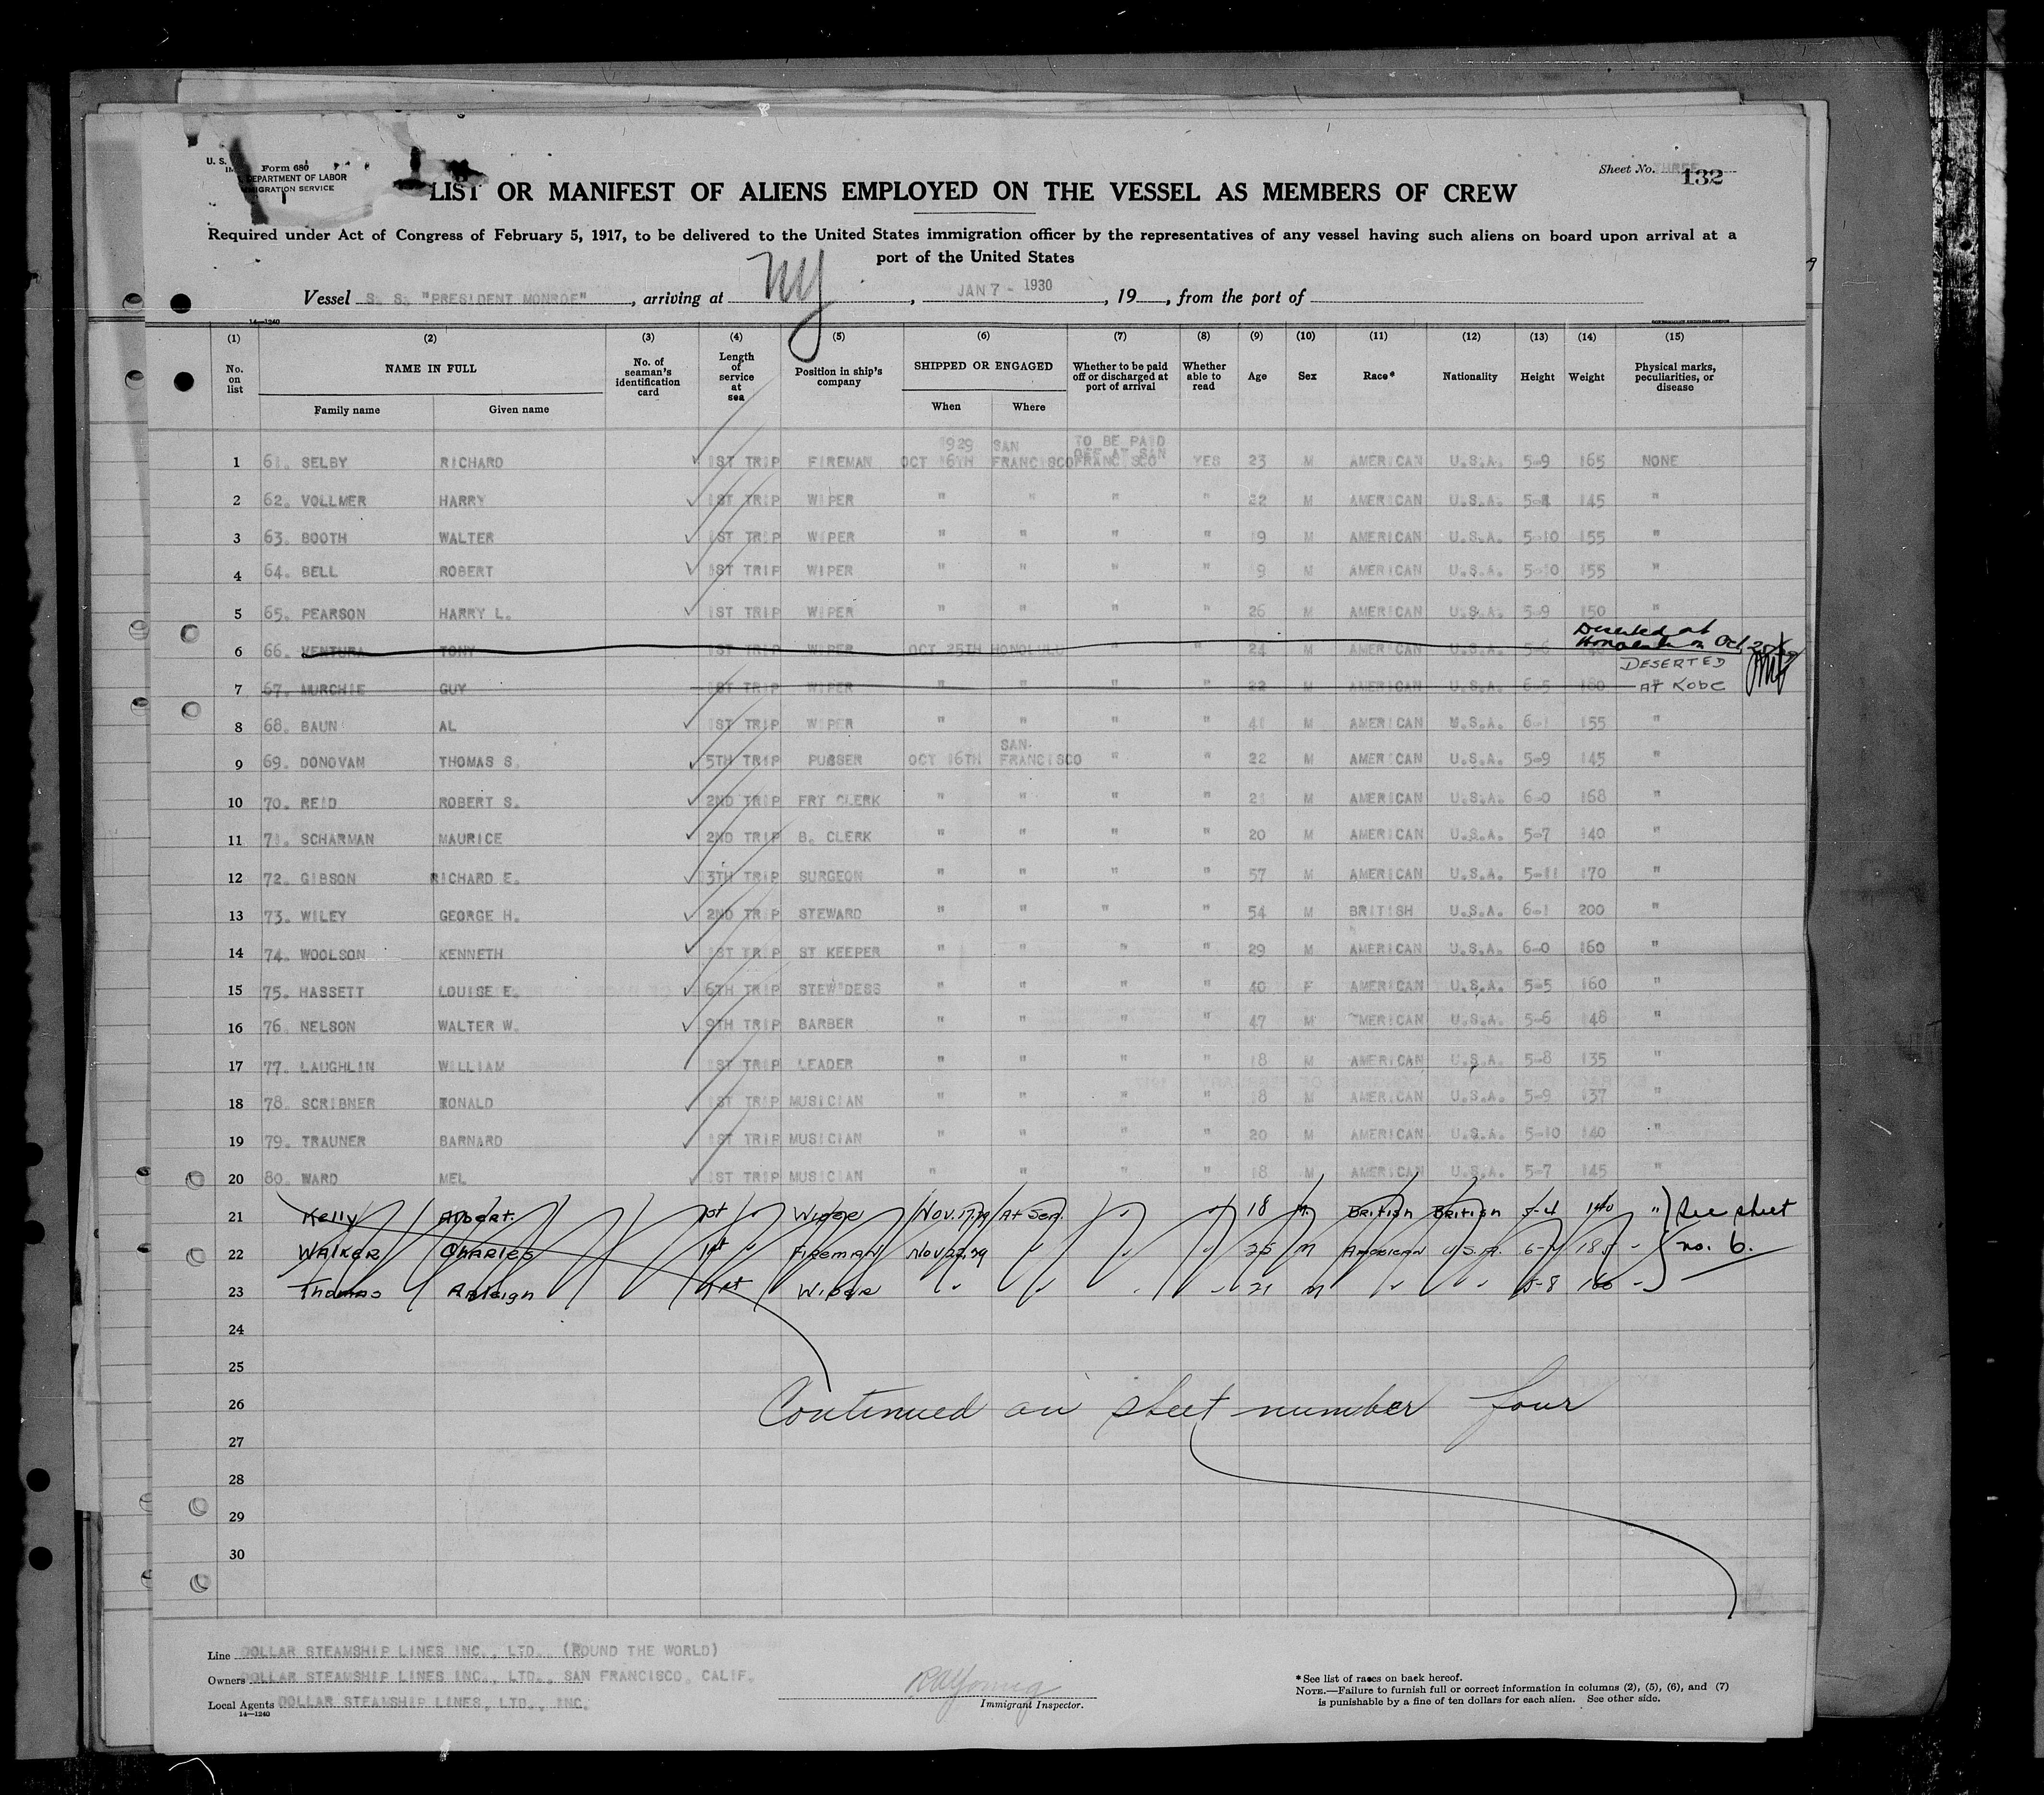 Form 680
U. S. DEPARTMENT OF LABOR
IMMIGRATION SERVICE
Sheet No. THREE 132
LIST OR MANIFEST OF ALIENS EMPLOYED ON THE VESSEL AS MEMBERS OF CREW
Required under Act of Congress of February 5, 1917, to be delivered to the United States immigration officer by the representatives of any vessel having such aliens on board upon arrival at a
port of the United States
Vessel S. S. "PRESIDENT MONROE", arriving at NY, JAN 7 - 1930, 19, from the port of
14—1240
(1) (2) (3) (4) (5) (6) (7) (8) (9) (10) (11) (12) (13) (14) (15)
No. on list NAME IN FULL Family name Given name No. of seaman's identification card Length of service at sea Position in ship's company SHIPPED OR ENGAGED When Where Whether to be paid off or discharged at port of arrival Whether able to read Age Sex Race* Nationality Height Weight Physical marks, peculiarities, or disease
1 61. SELBY RICHARD 1ST TRIP FIREMAN 1929 OCT 16TH SAN FRANCISCO TO BE PAID OFF AT SAN FRANCISCO YES 23 M AMERICAN U.S.A. 5-9 165 NONE
2 62. VOLLMER HARRY 1ST TRIP WIPER " " " " 22 M AMERICAN U.S.A. 5-4 145 "
3 63. BOOTH WALTER 1ST TRIP WIPER " " " " 19 M AMERICAN U.S.A. 5-10 155 "
4 64. BELL ROBERT 1ST TRIP WIPER " " " " 19 M AMERICAN U.S.A. 5-10 155 "
5 65. PEARSON HARRY L. 1ST TRIP WIPER " " " " 26 M AMERICAN U.S.A. 5-9 150 "
6 66. VENTURA TONY 1ST TRIP WIPER OCT 25TH HONOLULU " " 24 M AMERICAN U.S.A. 5-6 140 Deserted at Honolulu on Oct
7 67. MURCHIE GUY 1ST TRIP WIPER " " " " 22 M AMERICAN U.S.A. 6-5 180 " DESERTED AT KOBE
8 68. BAUN AL 1ST TRIP WIPER " " " " 41 M AMERICAN U.S.A. 6-1 155 "
9 69. DONOVAN THOMAS S. 5TH TRIP PURSER OCT 16TH SAN. FRANCISCO " " 22 M AMERICAN U.S.A. 5-9 145 "
10 70. REID ROBERT S. 2ND TRIP FRT CLERK " " " " 21 M AMERICAN U.S.A. 6-0 168 "
11 71. SCHARMAN MAURICE 2ND TRIP B. CLERK " " " " 20 M AMERICAN U.S.A. 5-7 140 "
12 72. GIBSON RICHARD E. 13TH TRIP SURGEON " " " " 57 M AMERICAN U.S.A. 5-11 170 "
13 73. WILEY GEORGE H. 2ND TRIP STEWARD " " " " 54 M BRITISH U.S.A. 6-1 200 "
14 74. WOOLSON KENNETH 1ST TRIP ST KEEPER " " " " 29 M AMERICAN U.S.A. 6-0 160 "
15 75. HASSETT LOUISE E. 6TH TRIP STEW'DESS " " " " 40 F AMERICAN U.S.A. 5-5 160 "
16 76. NELSON WALTER W. 9TH TRIP BARBER " " " " 47 M AMERICAN U.S.A. 5-6 148 "
17 77. LAUGHLIN WILLIAM 1ST TRIP LEADER " " " " 18 M AMERICAN U.S.A. 5-8 135 "
18 78. SCRIBNER RONALD 1ST TRIP MUSICIAN " " " " 18 M AMERICAN U.S.A. 5-9 137 "
19 79. TRAUNER BARNARD 1ST TRIP MUSICIAN " " " " 20 M AMERICAN U.S.A. 5-10 140 "
20 80. WARD MEL 1ST TRIP MUSICIAN " " " " 18 M AMERICAN U.S.A. 5-7 145 "
21 Kelly Albert. 1st " Wiper Nov. 17.29 At Sea. " " 18 M. British British 5-4 140 " See sheet
22 Walker Charles 1st " Fireman Nov 22.29 " " " 25 M American U.S.A. 185 " no. 6.
23 Thomas Raleigh 1st Wiper " " " " 21 M " " 5-8 160 "
24
25
26 Continued on sheet number four
27
28
29
30
Line DOLLAR STEAMSHIP LINES INC., LTD. (ROUND THE WORLD)
Owners DOLLAR STEAMSHIP LINES INC., LTD., SAN FRANCISCO, CALIF.
Local Agents DOLLAR STEAMSHIP LINES, LTD., INC.
14—1240
RA Young
Immigrant Inspector.
*See list of races on back hereof.
NOTE.—Failure to furnish full or correct information in columns (2), (5), (6), and (7)
is punishable by a fine of ten dollars for each alien. See other side.